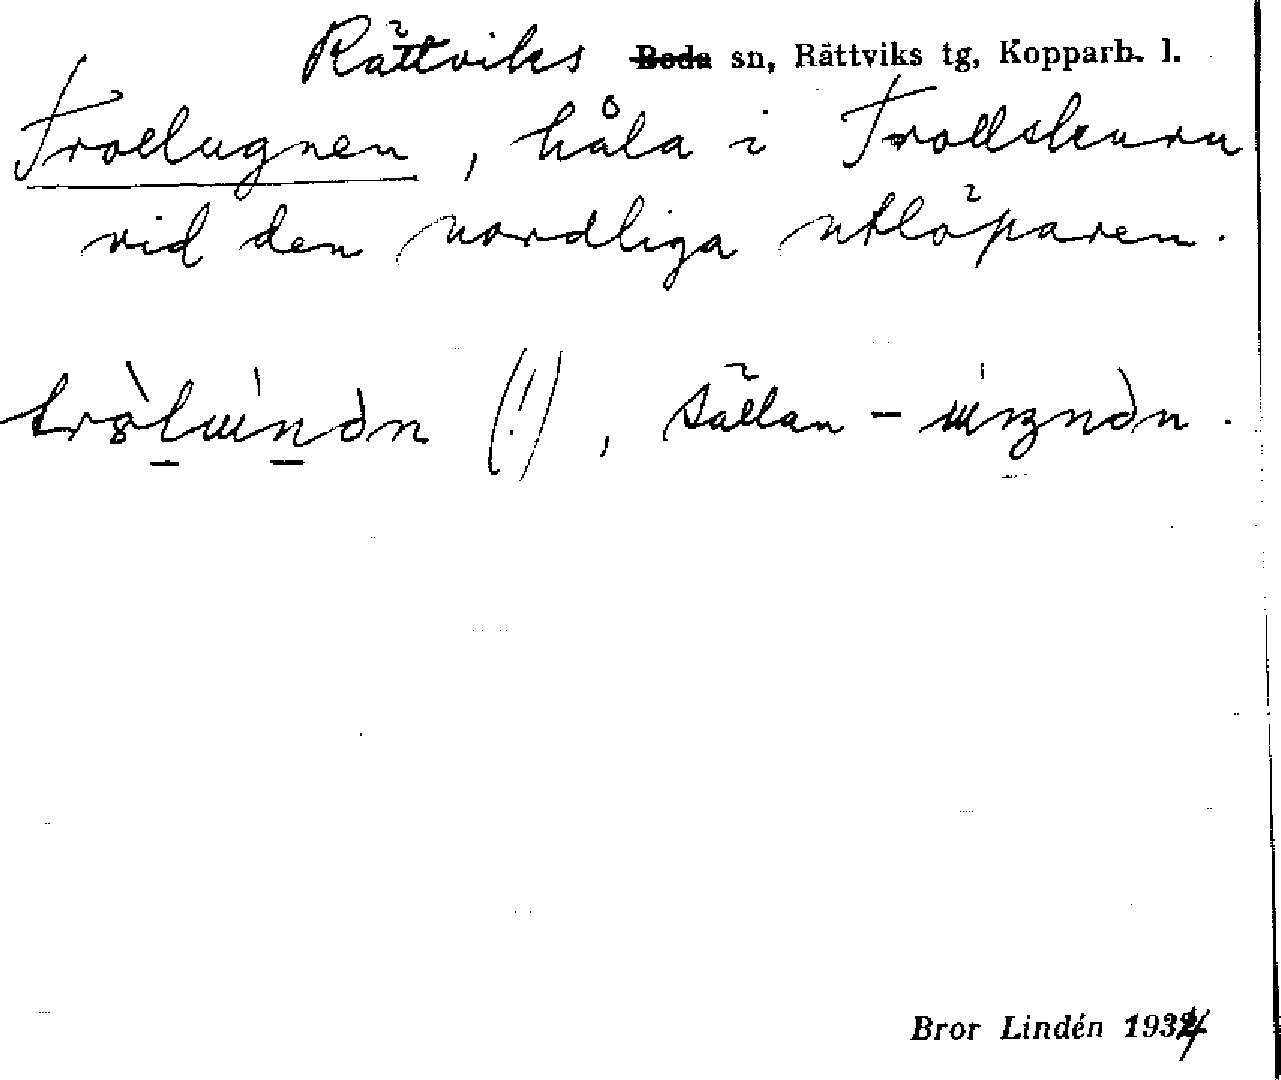 Rättviks Boda sn, Rättviks tg, Kopparb. l.
Trollugnen, håla i Trollskuru
vid den nordliga utlöparen.
(!), sällan
Bror Lindén 1934